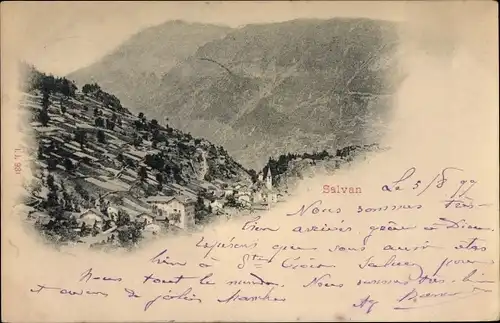 Salvan
Le 5/8 99
Nous sommes très
bien arrivés, grâce à Dieu.
espérons que vous aussi êtes
bien à Ste Croix. Saluez pour
Nous tout le monde. Nous sommes très bien
et avons de jolies Marches
J. J. 931